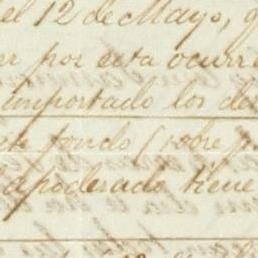 el 12 de Mayo, q
er por esta ocurr
importado los de
este fondo (sobre p
apoderado tiene